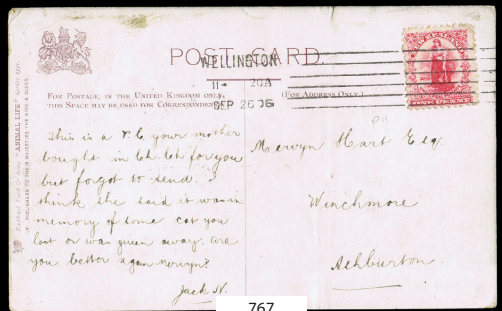 POST CARD.
WELLINGTON
11- 20A
SEP 26 06
FOR POSTAGE, IN THE UNITED KINGDOM ONLY,
THIS SPACE MAY BE USED FOR CORRESPONDENCE
(FOR ADDRESS ONLY.)
"ANIMAL LIFE"
ONE PENNY
This is a P.C your mother
bought in Ch. Ch for you
but forgot to send. I
think she said it was in
memory of some cat you
lost or was given away. Are
you better again Mervyn?
Jack N.
Mervyn Hart Esq.
Winchmore
Ashburton
767